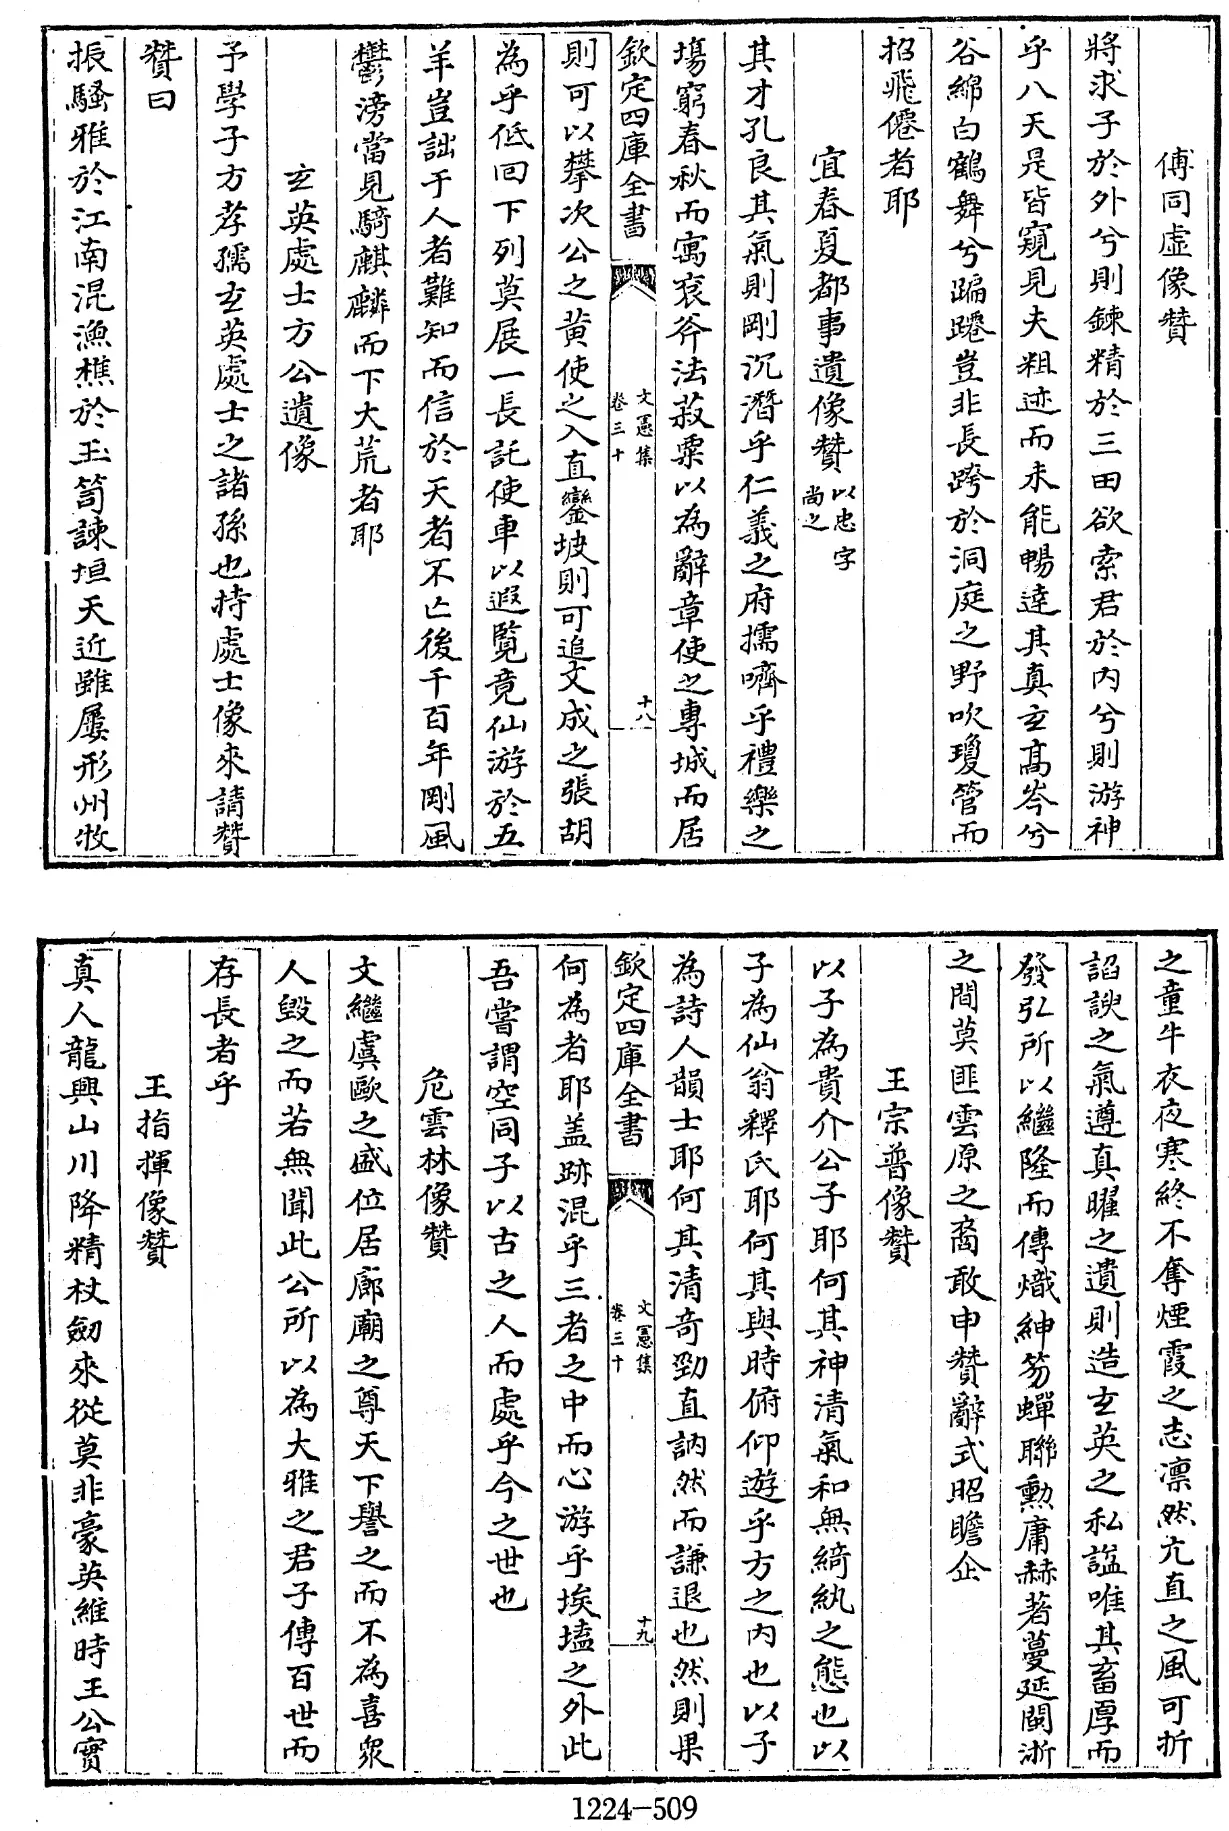 傅同虛像贊
將求子於外兮則鍊精於三田欲索君於内兮則游神
乎八天是皆窺見夫粗迹而未能暢達其真玄高岑兮
谷綿白鶴舞兮蹁蹮豈非長跨於洞庭之野吹瓊管而
招飛僊者耶
宜春夏都事遺像贊以忠字尚之
其才孔良其氣則剛沉潛乎仁義之府擩嚌乎禮樂之
塲窮春秋而寓衮斧法菽粟以為辭章使之專城而居
欽定四庫全書
文憲集
卷三十
十八
則可以攀次公之黄使之入直鑾坡則可追文成之張胡
為乎低回下列莫展一長託使車以遐覧竟仙游於五
羊豈詘于人者難知而信於天者不亡後千百年剛風
鬱滂當見騎麒麟而下大荒者耶
玄英處士方公遺像
予學子方孝孺玄英處士之諸孫也持處士像來請贊
贊曰
振騷雅於江南混漁樵於玉笥諫垣天近雖屢形州牧
之童牛衣夜寒終不奪煙霞之志凛然亢直之風可折
諂諛之氣遵真曜之遺則造玄英之私諡唯其畜厚而
發弘所以繼隆而傳熾紳笏蟬聯勲庸赫著蔓延閩浙
之間莫匪雲原之裔敢申贊辭式昭瞻企
王宗普像贊
以子為貴介公子耶何其神清氣和無綺紈之態也以
子為仙翁釋氏耶何其與時俯仰遊乎方之内也以子
為詩人韻士耶何其清奇勁直訥然而謙退也然則果
欽定四庫全書
文憲集
卷三十
十九
何為者耶盖跡混乎三者之中而心游乎埃壒之外此
吾嘗謂空同子以古之人而處乎今之世也
危雲林像贊
文繼虞歐之盛位居廊廟之尊天下譽之而不為喜衆
人毁之而若無聞此公所以為大雅之君子傳百世而
存長者乎
王指揮像贊
真人龍興山川降精杖劒來從莫非豪英維時王公實
1224-509